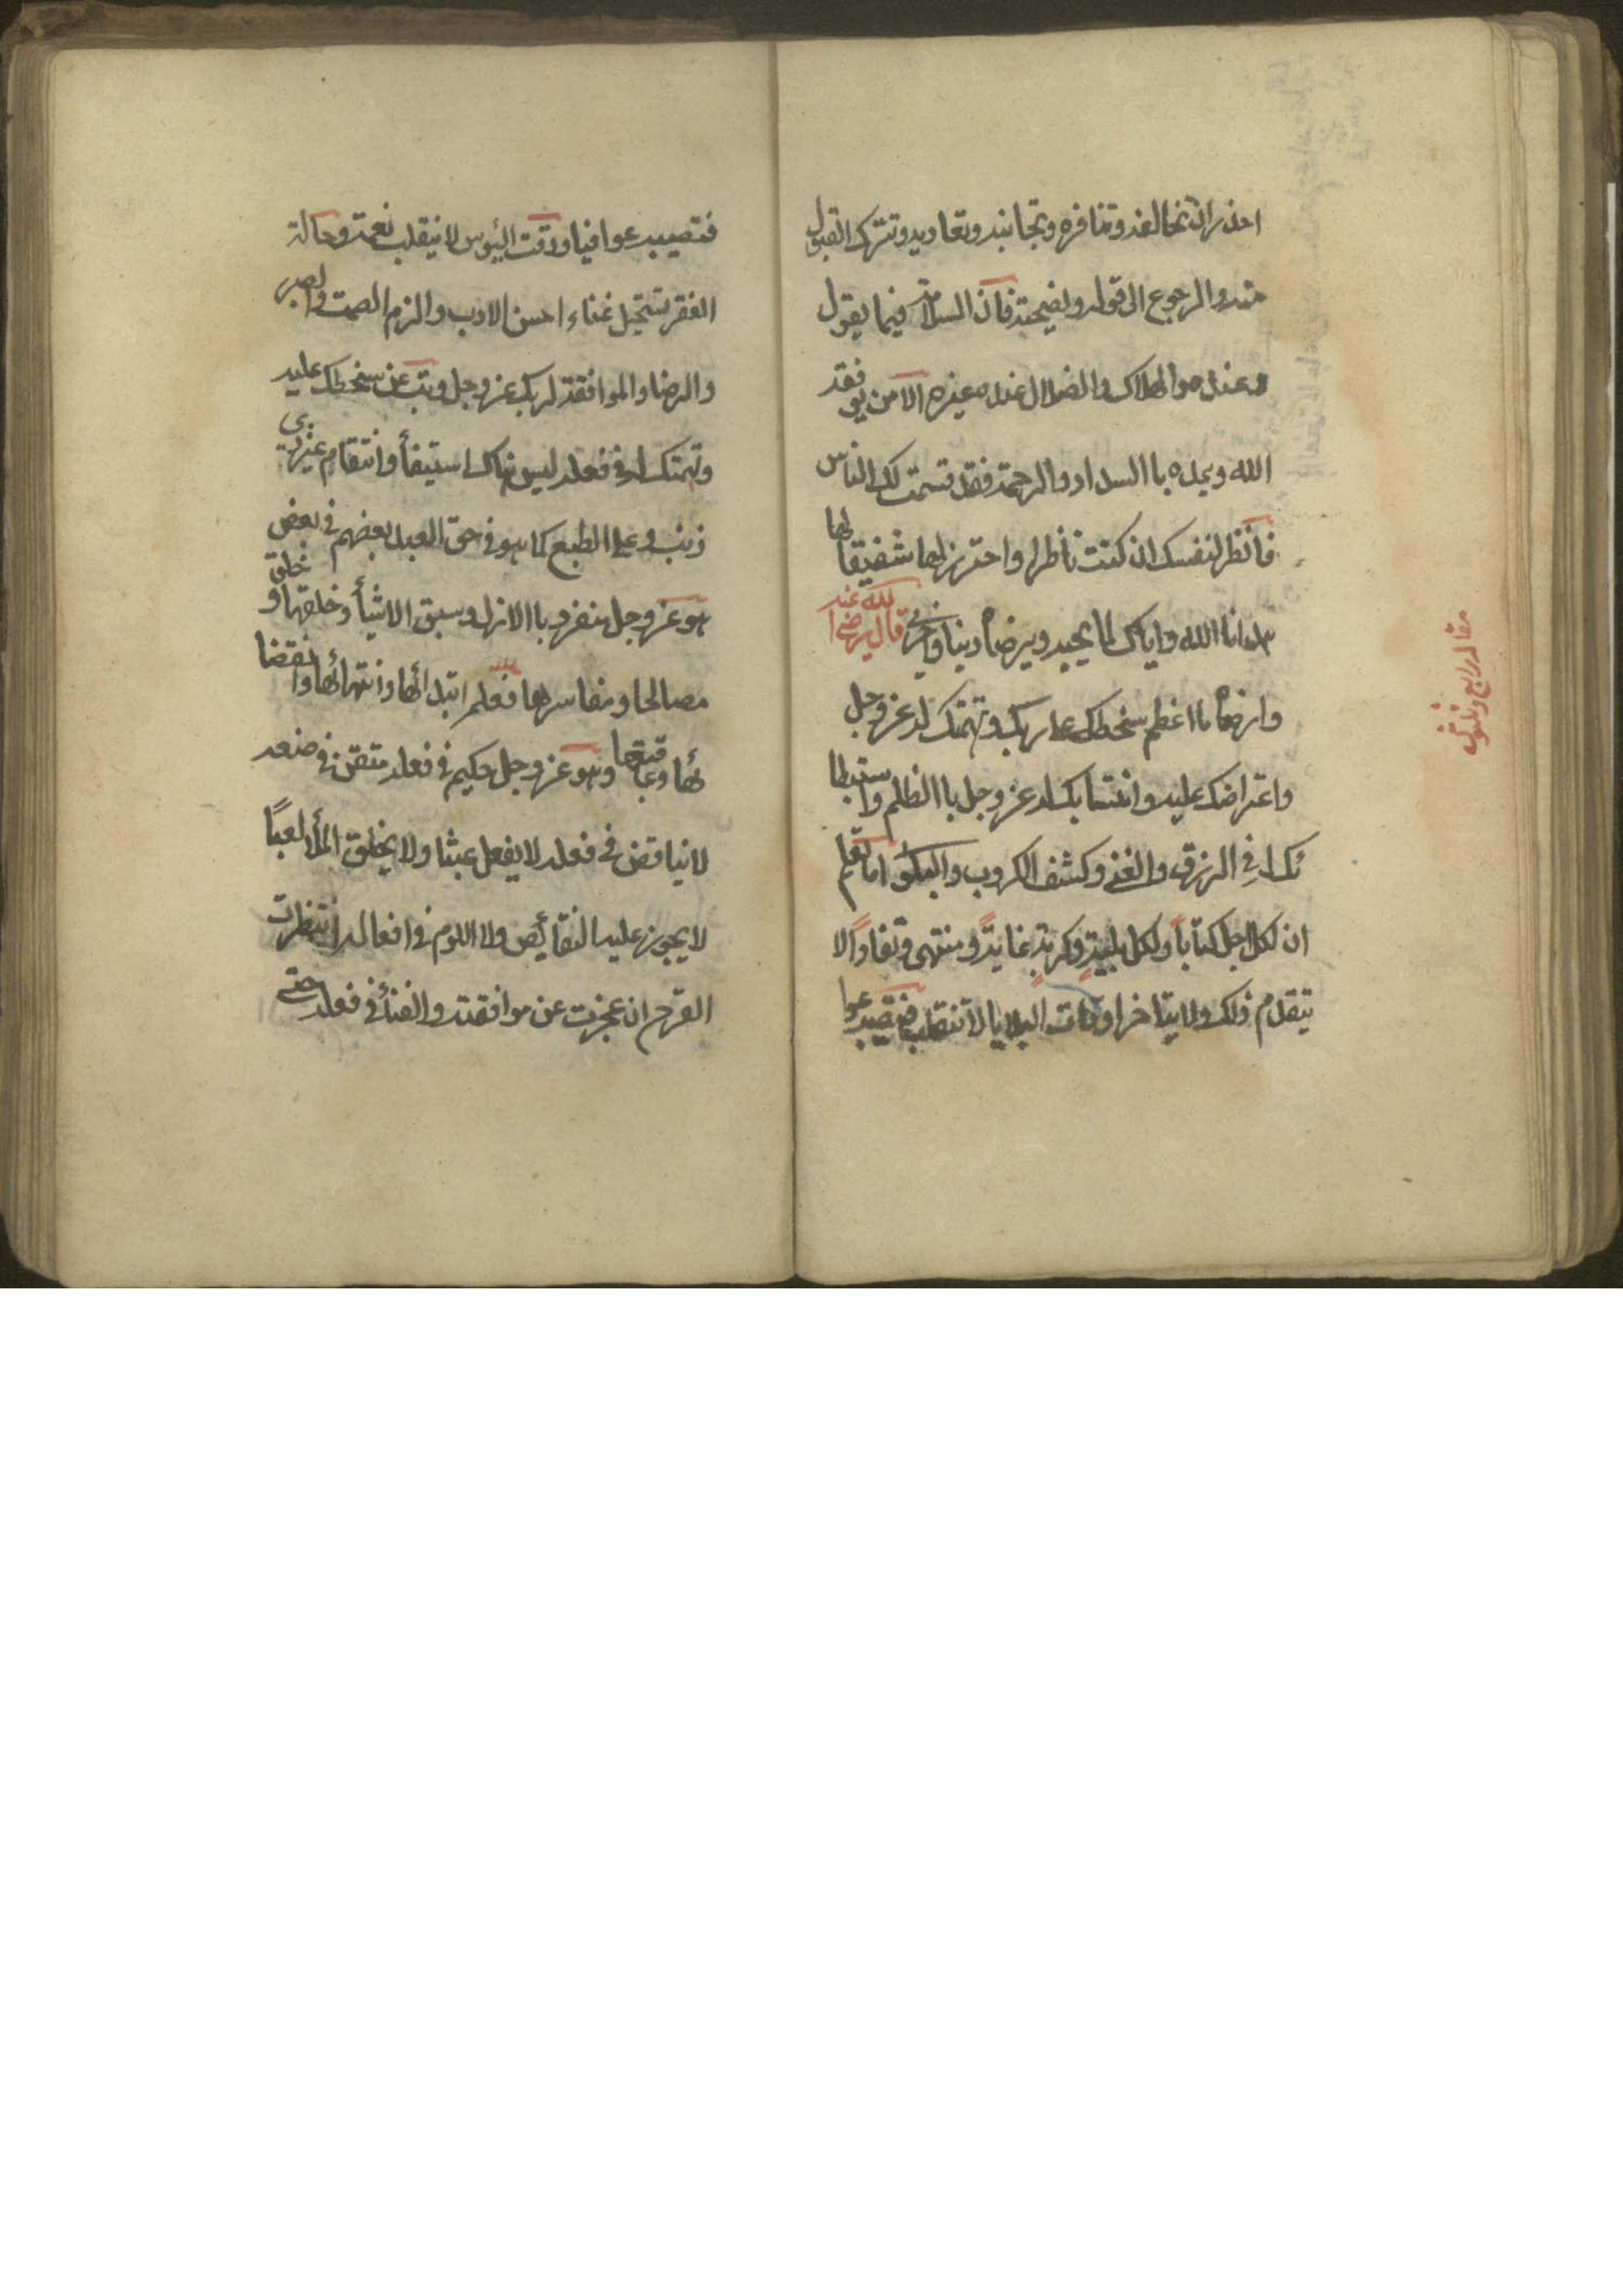 احذر ان تخالفه وتنافره وتجانبه وتعاديه وتترك القبول
منه والرجوع الى قوله ونصيحته فان السلامة فيما يقول
وعنده والهلاك والضلال عند غيره الا من يوفقه
الله ويمده باالسداد والرحمة فقد قسمت لك الناس
فانظر لنفسك ان كنت ناظرا واحترز لها شفيقا لها
هدانا الله واياك لما يحبه ويرضاه دنيا واخرى قال رضي الله عنه
وارضاه ما اعظم سخطك على ربك وتهمتك له عز وجل
واعتراضك عليه وانتسابك له عز وجل باالظلم واستبطا
ئك له في الرزق والغنى وكشف الكروب والبلوى اما تعلم
ان لكل اجل كتاباً ولكل بليةٍ وكربةٍ غايةً ومنتهى ونفاداً لا
يتقدم ذلك ولا يتاخر اوقات البلايا لا تنقلب فتصير عوا
مقاله رابع وثلثون
فتصير عوافيا ووقت البؤس لا ينقلب نعمة وحالة
الفقر تستحيل غناء احسن الادب والزم الصمت والصبر
والرضا والموافقة لربك عز وجل وتب عن سخطك عليه
وتهمتك له في فعله ليس هناك استيفأ وانتقام من غير
ذنب ولا على الطبع كما هو في حق العبيد بعضهم في بعض
هو عز وجل منفرد باالازل وسبق الاشيأ وخلقها و خلق
مصالحها ومفاسدها فعلم ابتدائها وانتهائها وانقضا
ئها وعاقبتها وهو عز وجل حكيم في فعله متقن في صنعه
لا تناقض في فعله لا يفعل عبثا ولا يخلق باطلا لعباً
لا يجوز عليه النقائص ولا اللوم في افعاله انتظرت
الفرج ان عجزت عن موافقته والفنأ في فعله حتى